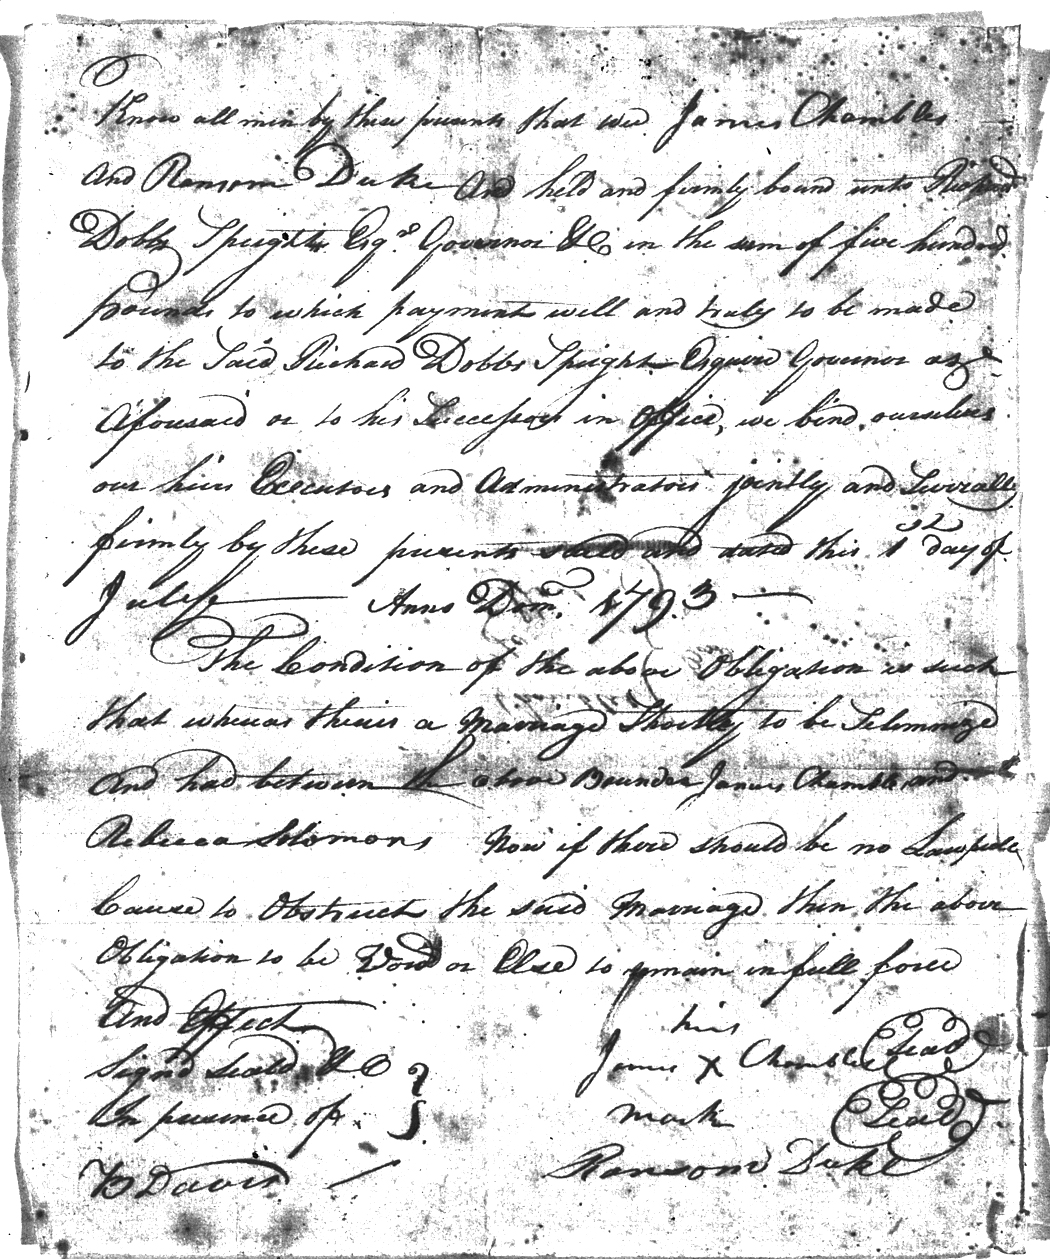 Know all men by these presents that we James Chambles
And Ransom Duke And held and firmly bound unto Richard
Dobbs Speight Esqr. Governor &C in the sum of five hundred
pounds to which payment well and truly to be made
to the Said Richard Dobbs Speight Esquire Governor as
Aforesaid or to his Successors in Office, we bind ourselves
our heirs Executors and Administrators jointly and Severally
firmly by these presents sealed and dated this 1st day of
July Anno Dom. 1793
The Condition of the above Obligation is such
that whereas theirs a Marriage Shortly to be Solemnized
And had between the above Bounden James Chambles and
Rebecca Solomons Now if there should be no Lawfule
Cause to Obstruct the said Marriage then the above
Obligation to be Void or Else to remain in full force
And Effect
Signd Seald &C
In presence of
his
James X Chambles (Seal)
mark
Ransom Duke (Seal)
B Davis